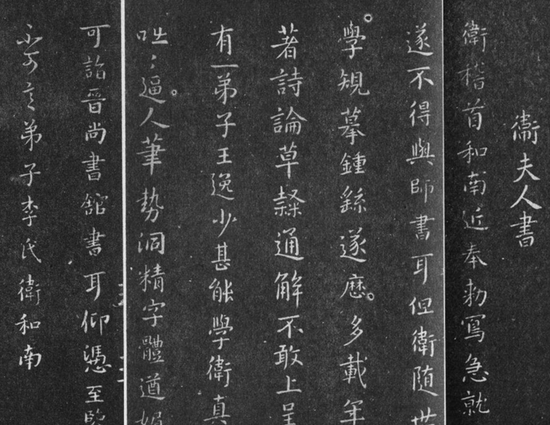 衛夫人書
衛稽首和南近奉勅寫急就
遂不得與師書耳但衛隨世
學規摹鍾繇遂歷多載年
著詩論草隸通解不敢上呈
有一弟子王逸少甚能學衛真
咄〻逼人筆勢洞精字體遒媚
可詣晉尚書舘書耳仰憑至鑒
不可言弟子李氏衛和南